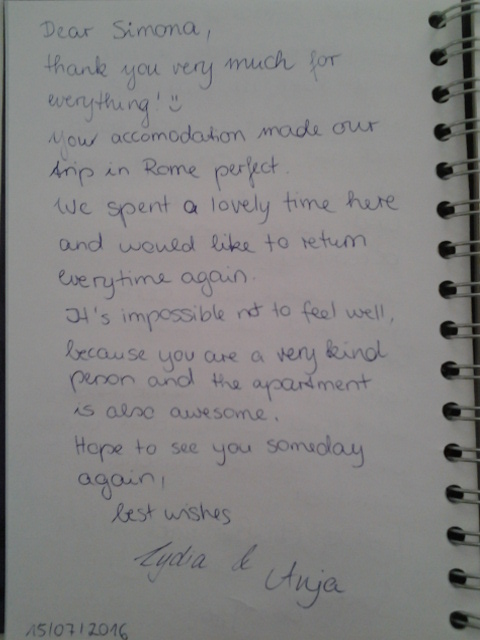 Dear Simona,
thank you very much for
everything! :)
Your accomodation made our
trip in Rome perfect.
We spent a lovely time here
and would like to return
everytime again.
It's impossible not to feel well,
because you are a very kind
person and the apartment
is also awesome.
Hope to see you someday
again,
best wishes
Lydia & Anja
15/07/2016